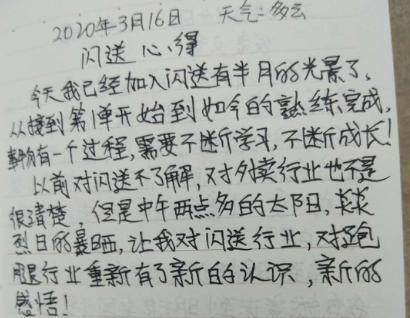 2020年3月16日 天气=多云
闪送心得
今天我已经加入闪送有半月的光景了,
从接到第1单开始到如今的熟练完成,
事物有一个过程,需要不断学习,不断成长!
以前对闪送不了解,对外卖行业也不是
很清楚,但是中午两点多的太阳,炎炎
烈日的暴晒,让我对闪送行业,对跑
腿行业重新有了新的认识,新的
感悟!